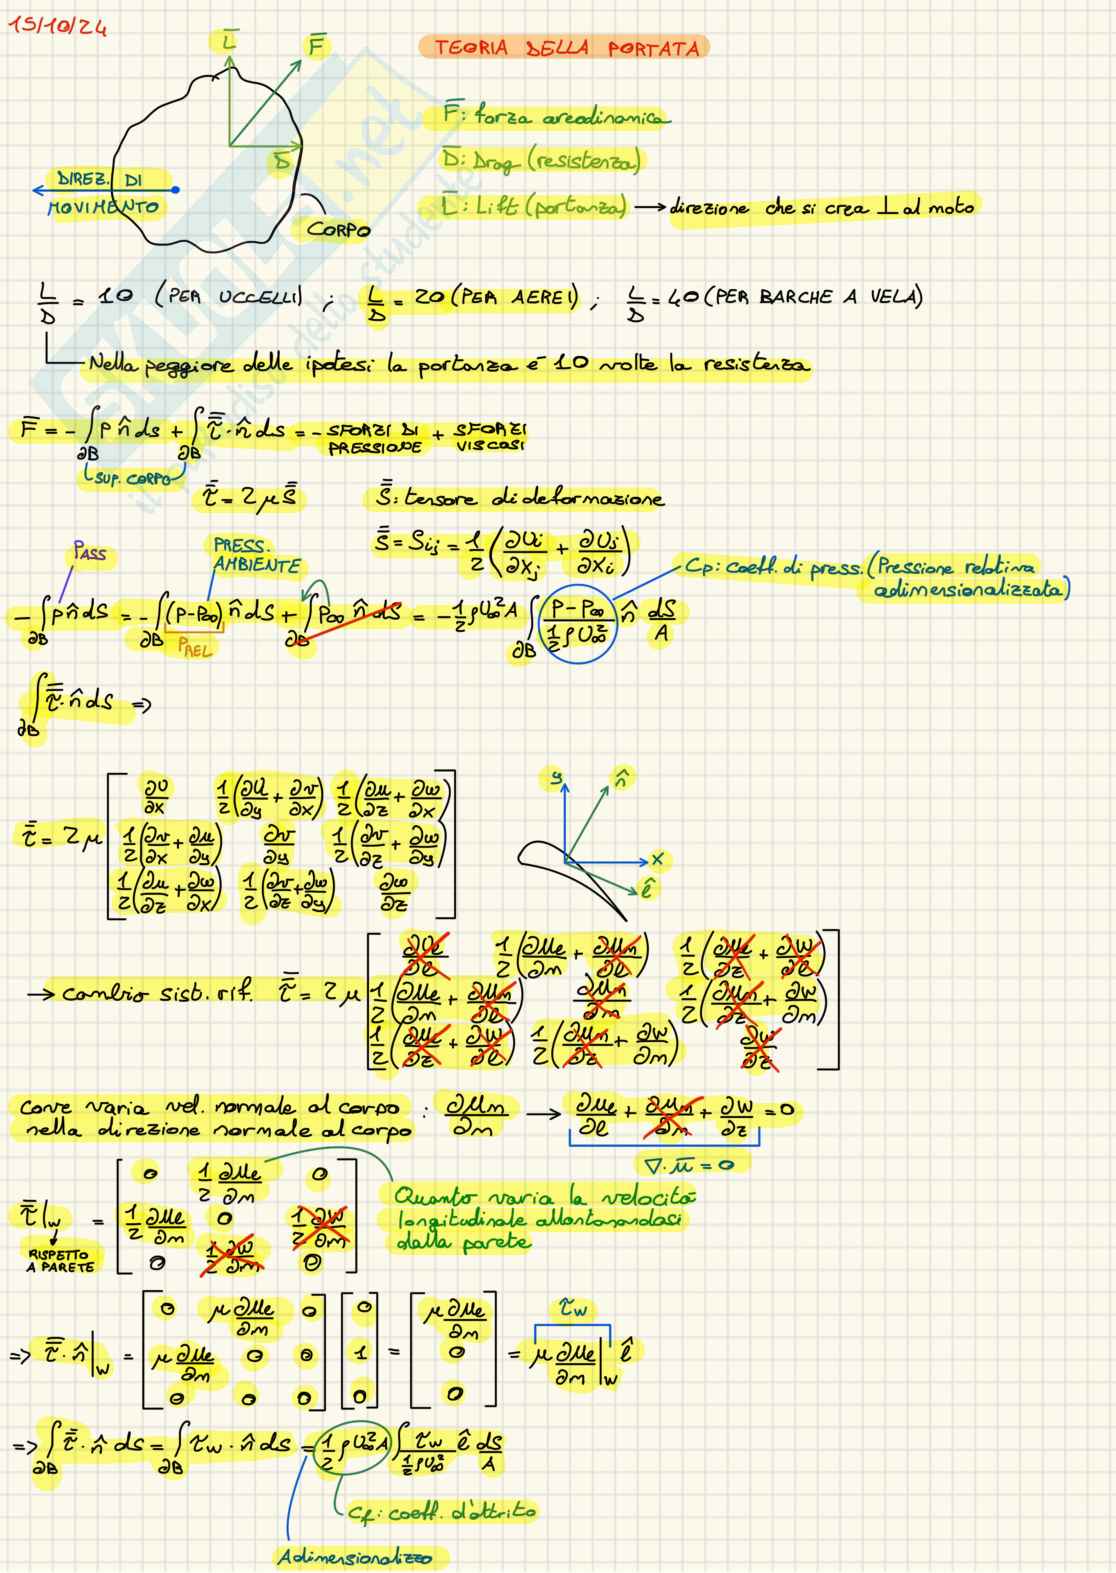 15/10/24
TEORIA DELLA PORTATA
L̅
F̅
D̅
DIREZ. DI
MOVIMENTO
CORPO
F̅: forza areodinamica
D̅: Drag (resistenza)
L̅: Lift (portanza) → direzione che si crea ⊥ al moto
L/D = 10 (PER UCCELLI) ; L/D = 20 (PER AEREI) ; L/D = 40 (PER BARCHE A VELA)
Nella peggiore delle ipotesi la portanza é 10 volte la resistenza
F̅ = - ∫∂B p n̂ ds + ∫∂B τ̿ · n̂ ds = - SFORZI DI PRESSIONE + SFORZI VISCOSI
SUP. CORPO
τ̿ = 2μ S̿
S̿: tensore di deformazione
S̿ = Sij = 1/2 (∂Ui/∂xj + ∂Uj/∂xi)
PASS
PRESS. AMBIENTE
Cp: coeff. di press. (Pressione relativa
adimensionalizzata)
- ∫∂B p n̂ dS = - ∫∂B (p-p∞) n̂ dS + ∫∂B p∞ n̂ dS = - 1/2 ρU∞² A ∫∂B (P-P∞)/(1/2 ρU∞²) n̂ dS/A
PREL
∫∂B τ̿ · n̂ dS =>
τ̿ = 2μ [ ∂U/∂x 1/2(∂U/∂y + ∂v/∂x) 1/2(∂u/∂z + ∂w/∂x)
1/2(∂v/∂x + ∂u/∂y) ∂v/∂y 1/2(∂v/∂z + ∂w/∂y)
1/2(∂u/∂z + ∂w/∂x) 1/2(∂v/∂z + ∂w/∂y) ∂w/∂z ]
y
n̂
x
ℓ̂
→ cambio sist. rif. τ̿ = 2μ [ ∂Ue/∂ℓ 1/2(∂Ue/∂n + ∂Un/∂ℓ) 1/2(∂Ue/∂z + ∂W/∂ℓ)
1/2(∂Ue/∂n + ∂Un/∂ℓ) ∂Un/∂n 1/2(∂Un/∂z + ∂W/∂n)
1/2(∂Ue/∂z + ∂W/∂ℓ) 1/2(∂Un/∂z + ∂W/∂n) ∂W/∂z ]
Come varia vel. normale al corpo
nella direzione normale al corpo : ∂Un/∂n → ∂Ue/∂ℓ + ∂Un/∂n + ∂W/∂z = 0
∇ · u̅ = 0
τ̿|w = [ 0 1/2 ∂Ue/∂n 0
1/2 ∂Ue/∂n 0 1/2 ∂W/∂n
0 1/2 ∂W/∂n 0 ]
RISPETTO
A PARETE
Quanto varia la velocità
longitudinale allontanandosi
dalla parete
=> τ̿ · n̂|w = [ 0 μ ∂Ue/∂n 0
μ ∂Ue/∂n 0 0
0 0 0 ] [ 0 1 0 ] = [ μ ∂Ue/∂n 0 0 ] = μ ∂Ue/∂n|w ℓ̂
τw
=> ∫∂B τ̿ · n̂ ds = ∫∂B τw · n̂ ds = 1/2 ρU∞² A ∫ τw/(1/2 ρU∞²) ℓ̂ dS/A
Cf: coeff. d'attrito
Adimensionalizzo
SKUOLA.net
il paradiso dello studente